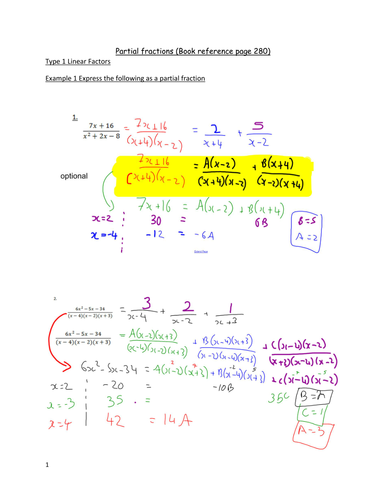 Partial fractions (Book reference page 280)
Type 1 Linear Factors
Example 1 Express the following as a partial fraction
1.
(7x + 16)/(x² + 2x − 8) = (7x+16)/((x+4)(x−2)) = 2/(x+4) + 5/(x−2)
optional
(7x+16)/((x+4)(x−2)) = A(x−2)/((x+4)(x−2)) + B(x+4)/((x−2)(x+4))
7x+16 = A(x−2) + B(x+4)
x=2 30 = 6B B=5
x=−4 −12 = −6A A=2
2.
(6x² − 5x − 34)/((x − 4)(x − 2)(x + 3)) = 3/(x−4) + 2/(x−2) + 1/(x+3)
(6x² − 5x − 34)/((x − 4)(x − 2)(x + 3)) = A(x−2)(x+3)/((x−4)(x−2)(x+3)) + B(x−4)(x+3)/((x−2)(x−4)(x+3)) + C(x−4)(x−2)/((x+3)(x−4)(x−2))
6x²−5x−34 = A(x−2)(x+3) + B(x−4)(x+3) + C(x−4)(x−2)
x=2 −20 = −10B
x=−3 35 = 35C C=1
x=4 42 = 14A
1